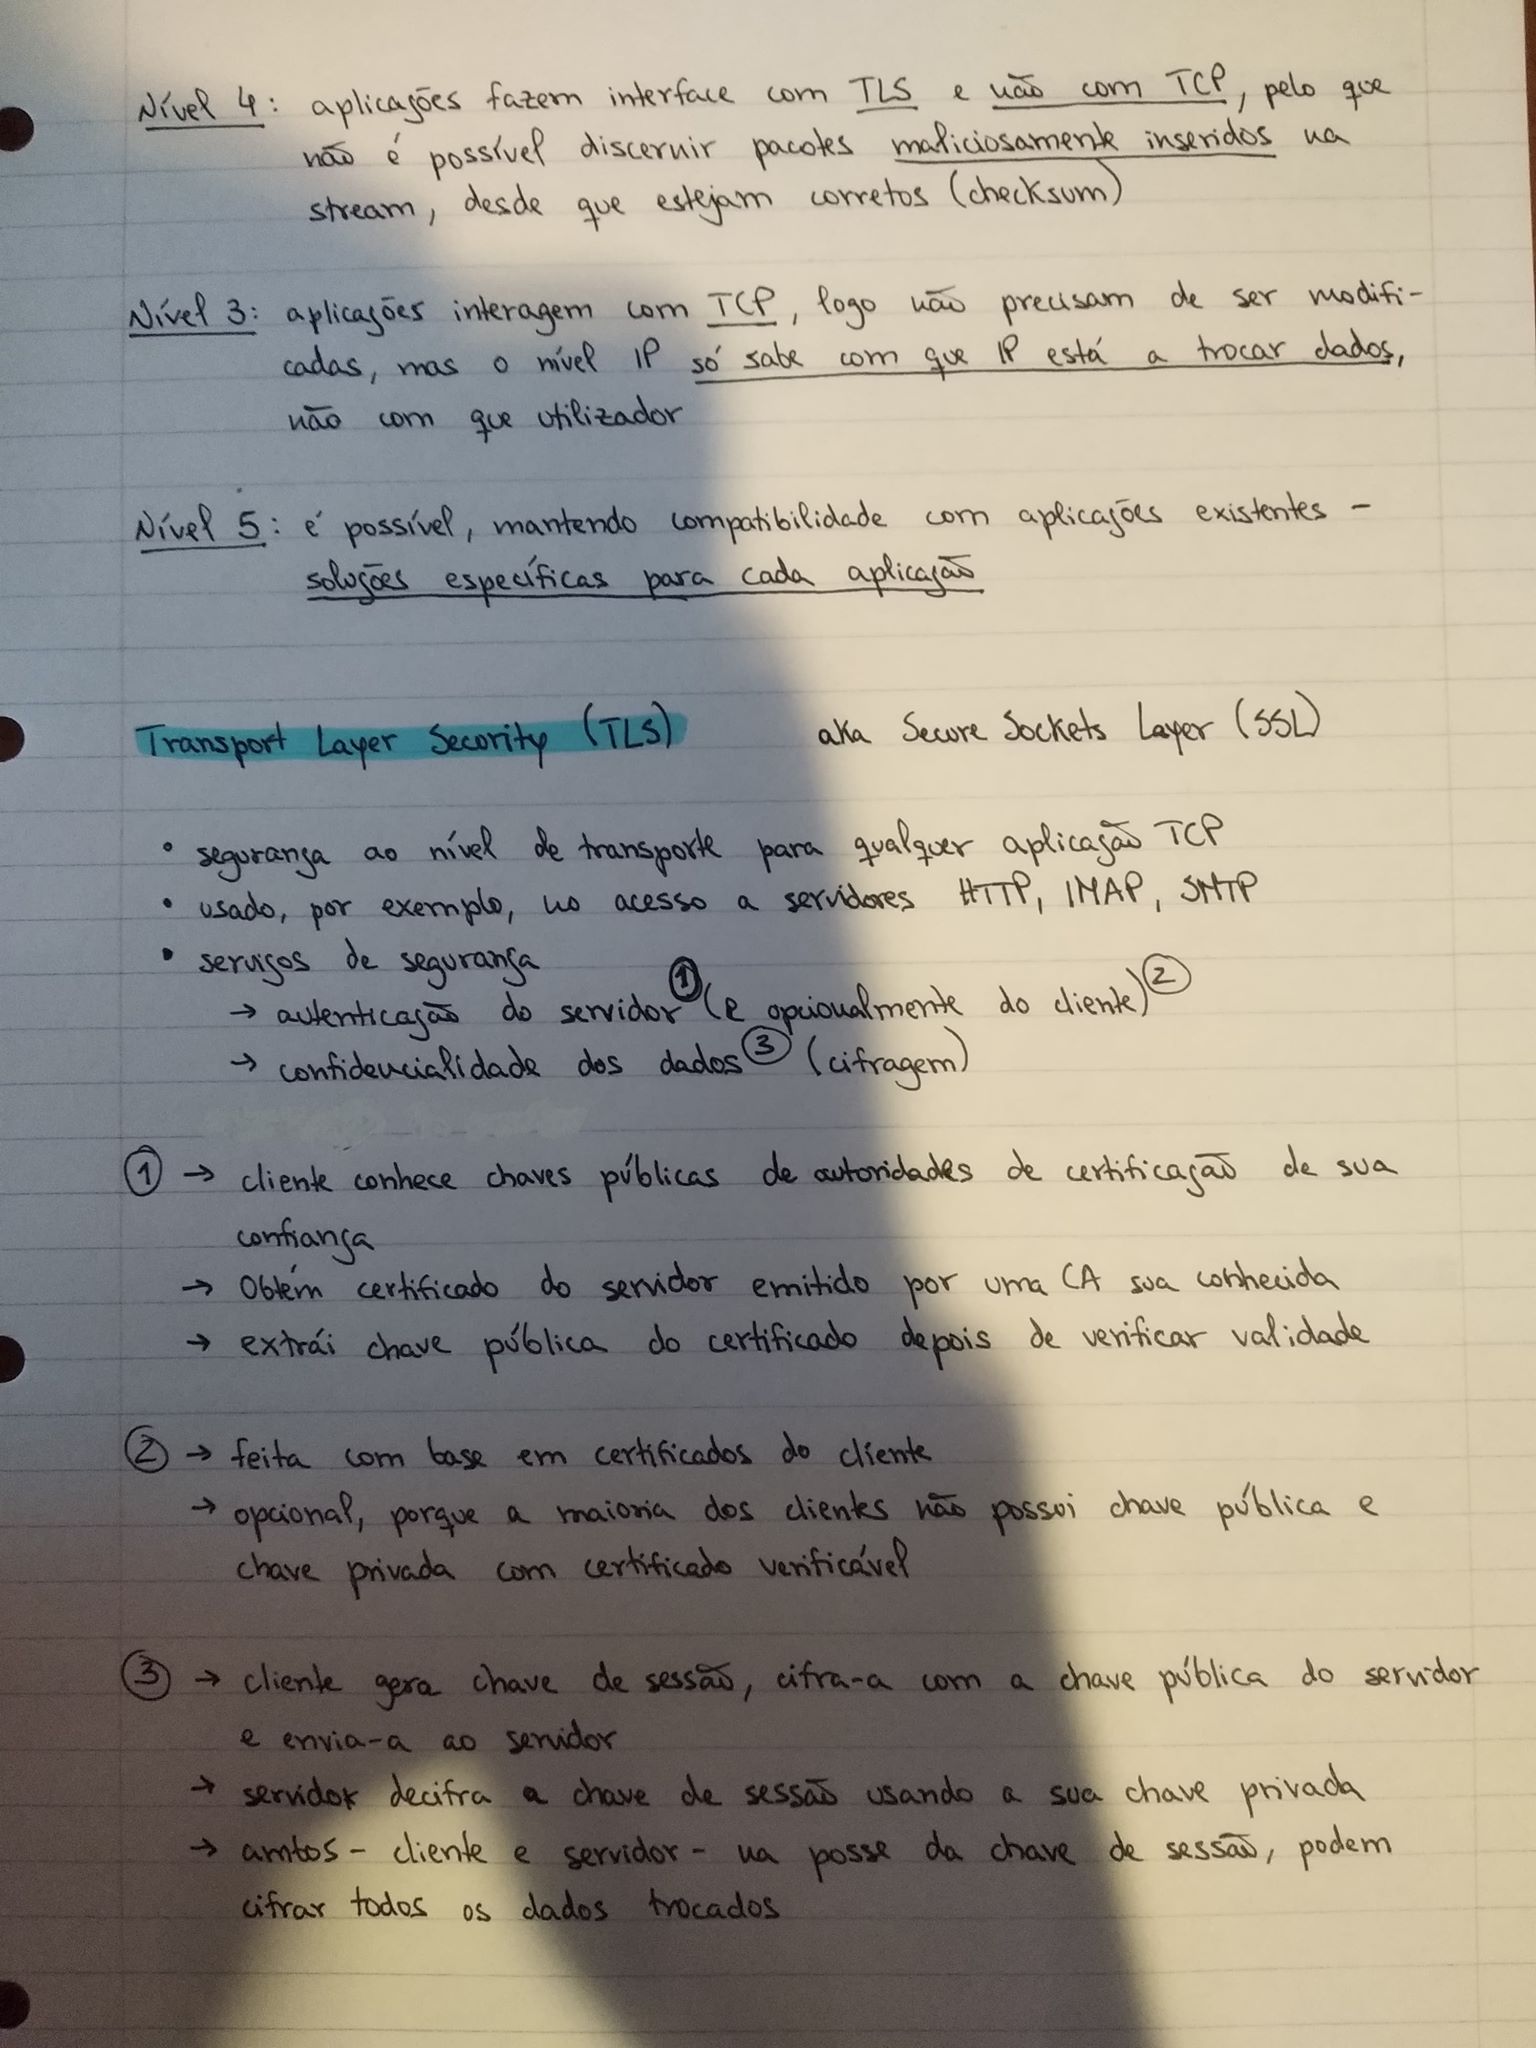 Nível 4: aplicações fazem interface com TLS e não com TCP, pelo que
não é possível discernir pacotes maliciosamente inseridos na
stream, desde que estejam corretos (checksum)
Nível 3: aplicações interagem com TCP, logo não precisam de ser modifi-
cadas, mas o nível IP só sabe com que IP está a trocar dados,
não com que utilizador
Nível 5: é possível, mantendo compatibilidade com aplicações existentes -
soluções específicas para cada aplicação
Transport Layer Security (TLS) aka Secure Sockets Layer (SSL)
• segurança ao nível de transporte para qualquer aplicação TCP
• usado, por exemplo, no acesso a servidores HTTP, IMAP, SMTP
• serviços de segurança
→ autenticação do servidor ① (e opcionalmente do cliente) ②
→ confidencialidade dos dados ③ (cifragem)
① → cliente conhece chaves públicas de autoridades de certificação de sua
confiança
→ Obtém certificado do servidor emitido por uma CA sua conhecida
→ extrái chave pública do certificado depois de verificar validade
② → feita com base em certificados do cliente
→ opcional, porque a maioria dos clientes não possui chave pública e
chave privada com certificado verificável
③ → cliente gera chave de sessão, cifra-a com a chave pública do servidor
e envia-a ao servidor
→ servidor decifra a chave de sessão usando a sua chave privada
→ ambos - cliente e servidor - na posse da chave de sessão, podem
cifrar todos os dados trocados